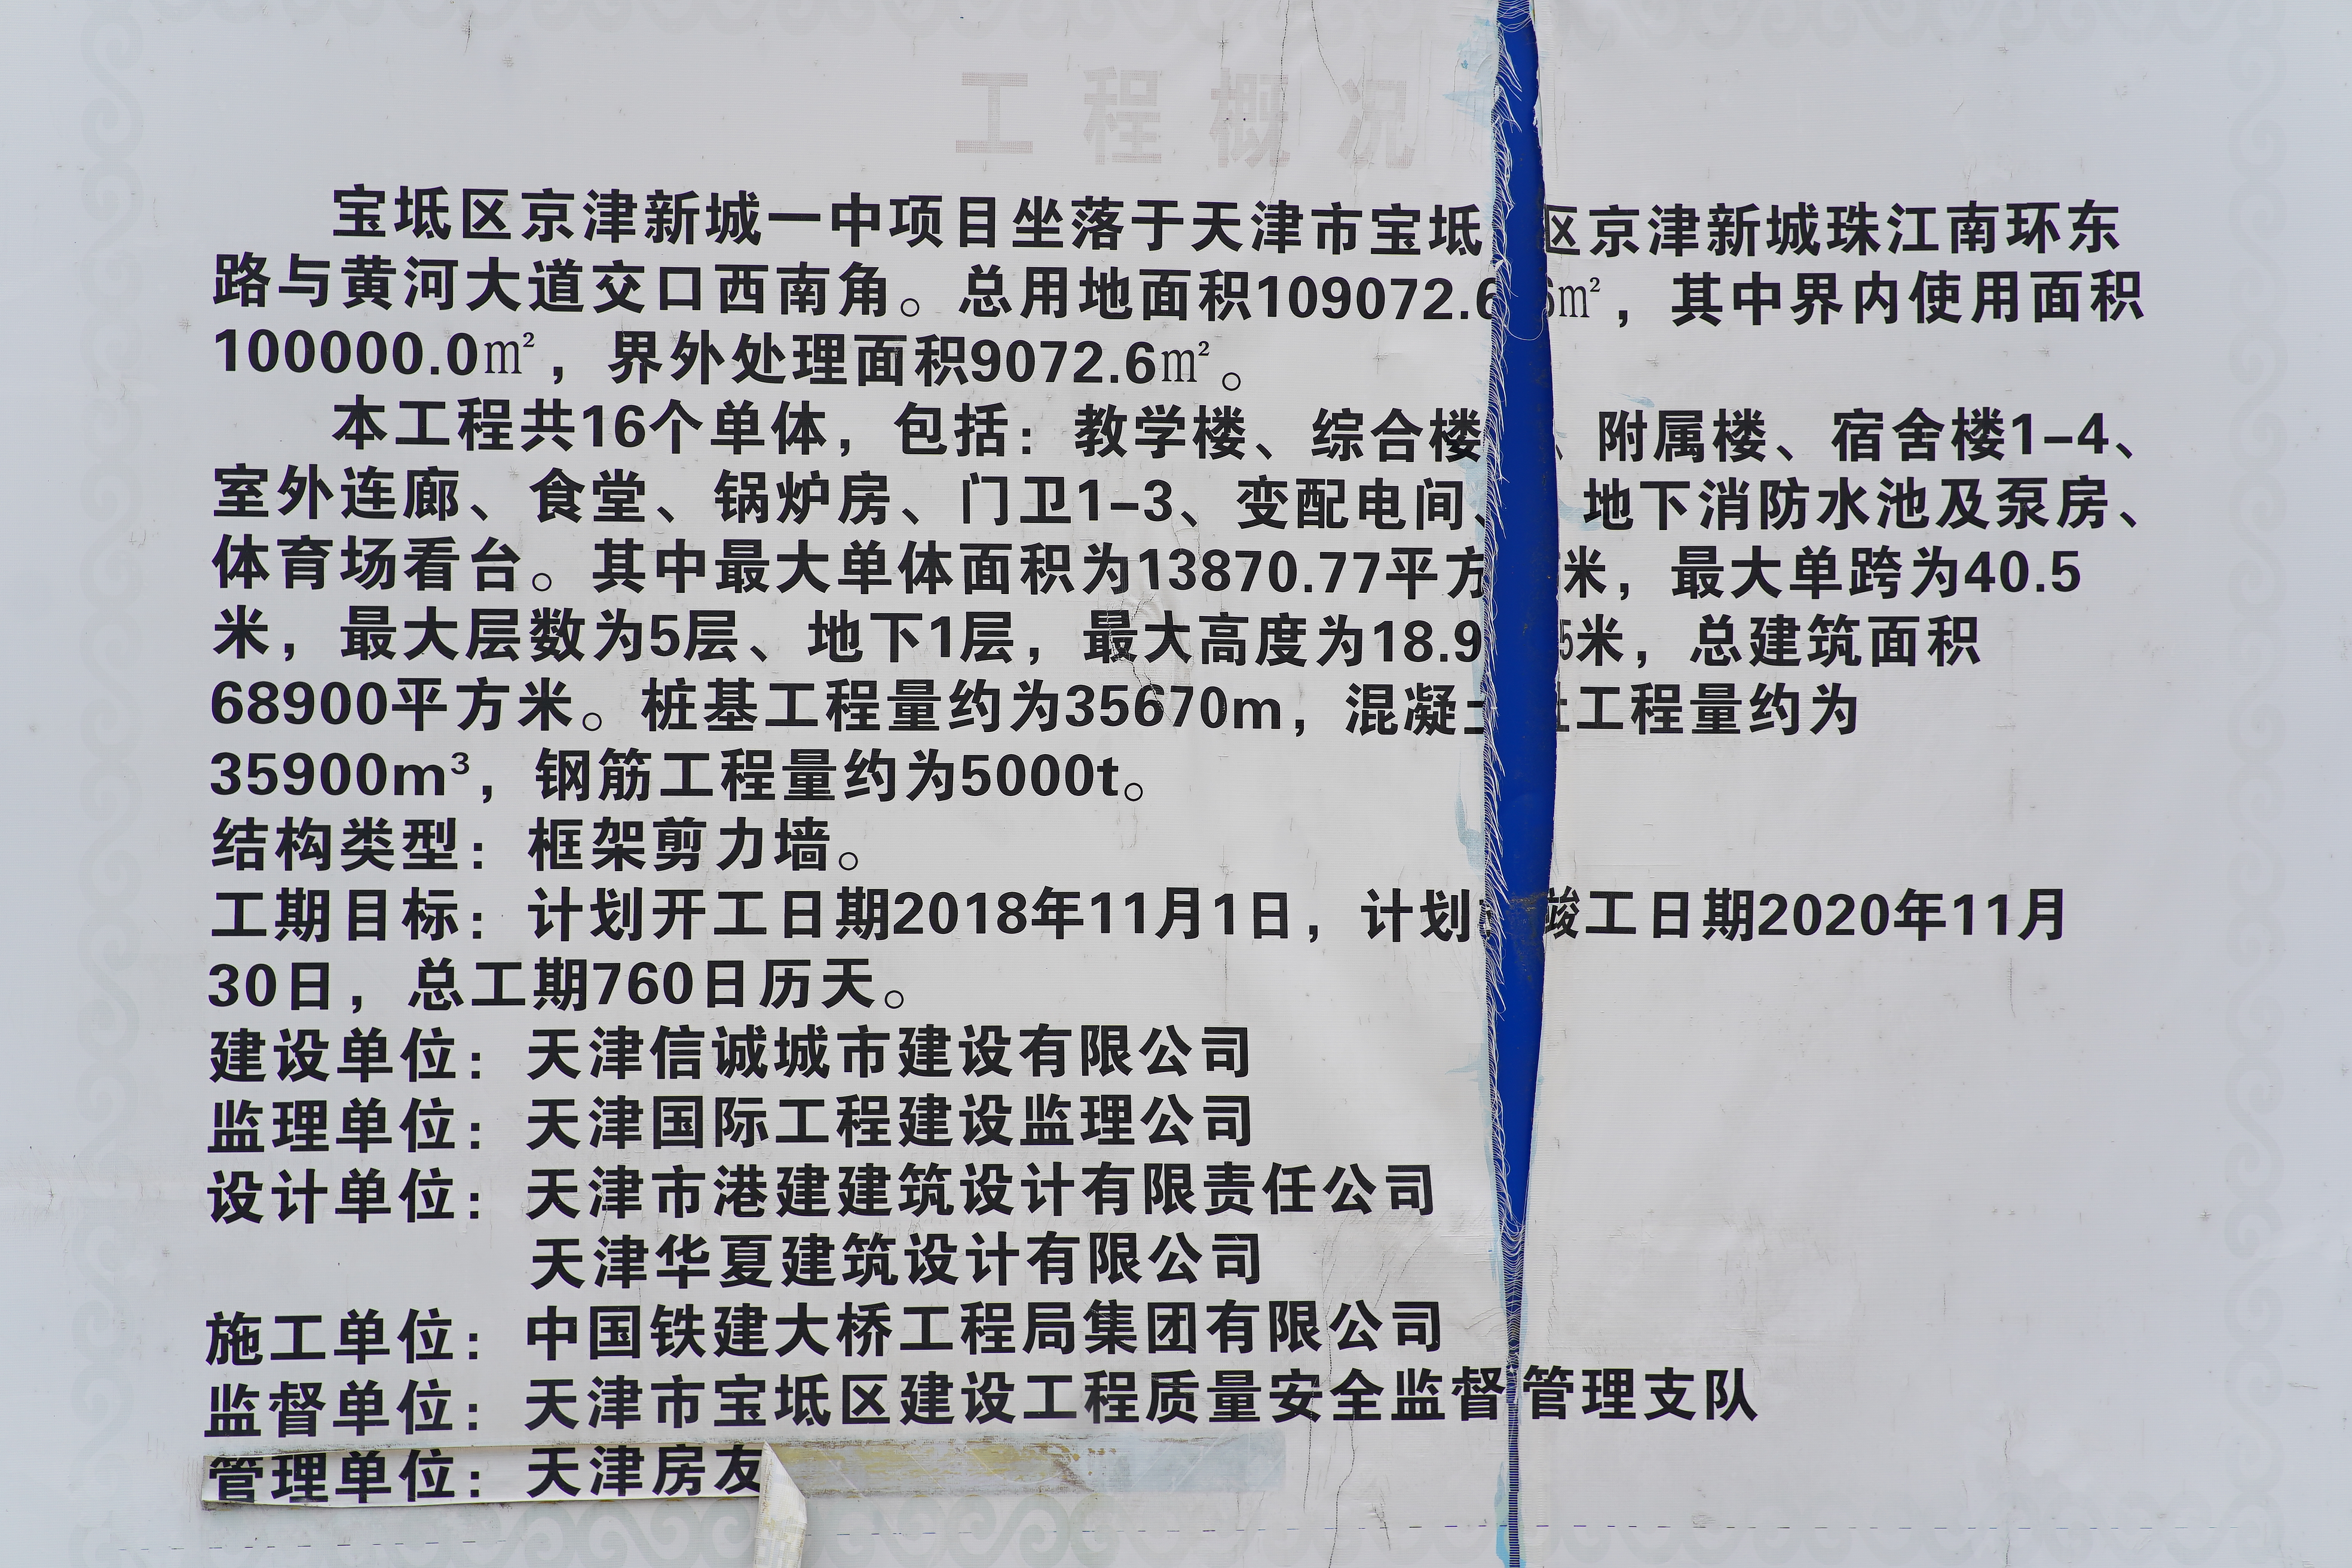 工程概况
宝坻区京津新城一中项目坐落于天津市宝坻区京津新城珠江南环东
路与黄河大道交口西南角。总用地面积109072.6㎡，其中界内使用面积
100000.0㎡，界外处理面积9072.6㎡。
本工程共16个单体，包括：教学楼、综合楼、附属楼、宿舍楼1-4、
室外连廊、食堂、锅炉房、门卫1-3、变配电间、地下消防水池及泵房、
体育场看台。其中最大单体面积为13870.77平方米，最大单跨为40.5
米，最大层数为5层、地下1层，最大高度为18.95米，总建筑面积
68900平方米。桩基工程量约为35670m，混凝土工程量约为
35900m³，钢筋工程量约为5000t。
结构类型：框架剪力墙。
工期目标：计划开工日期2018年11月1日，计划竣工日期2020年11月
30日，总工期760日历天。
建设单位：天津信诚城市建设有限公司
监理单位：天津国际工程建设监理公司
设计单位：天津市港建建筑设计有限责任公司
天津华夏建筑设计有限公司
施工单位：中国铁建大桥工程局集团有限公司
监督单位：天津市宝坻区建设工程质量安全监督管理支队
管理单位：天津房友